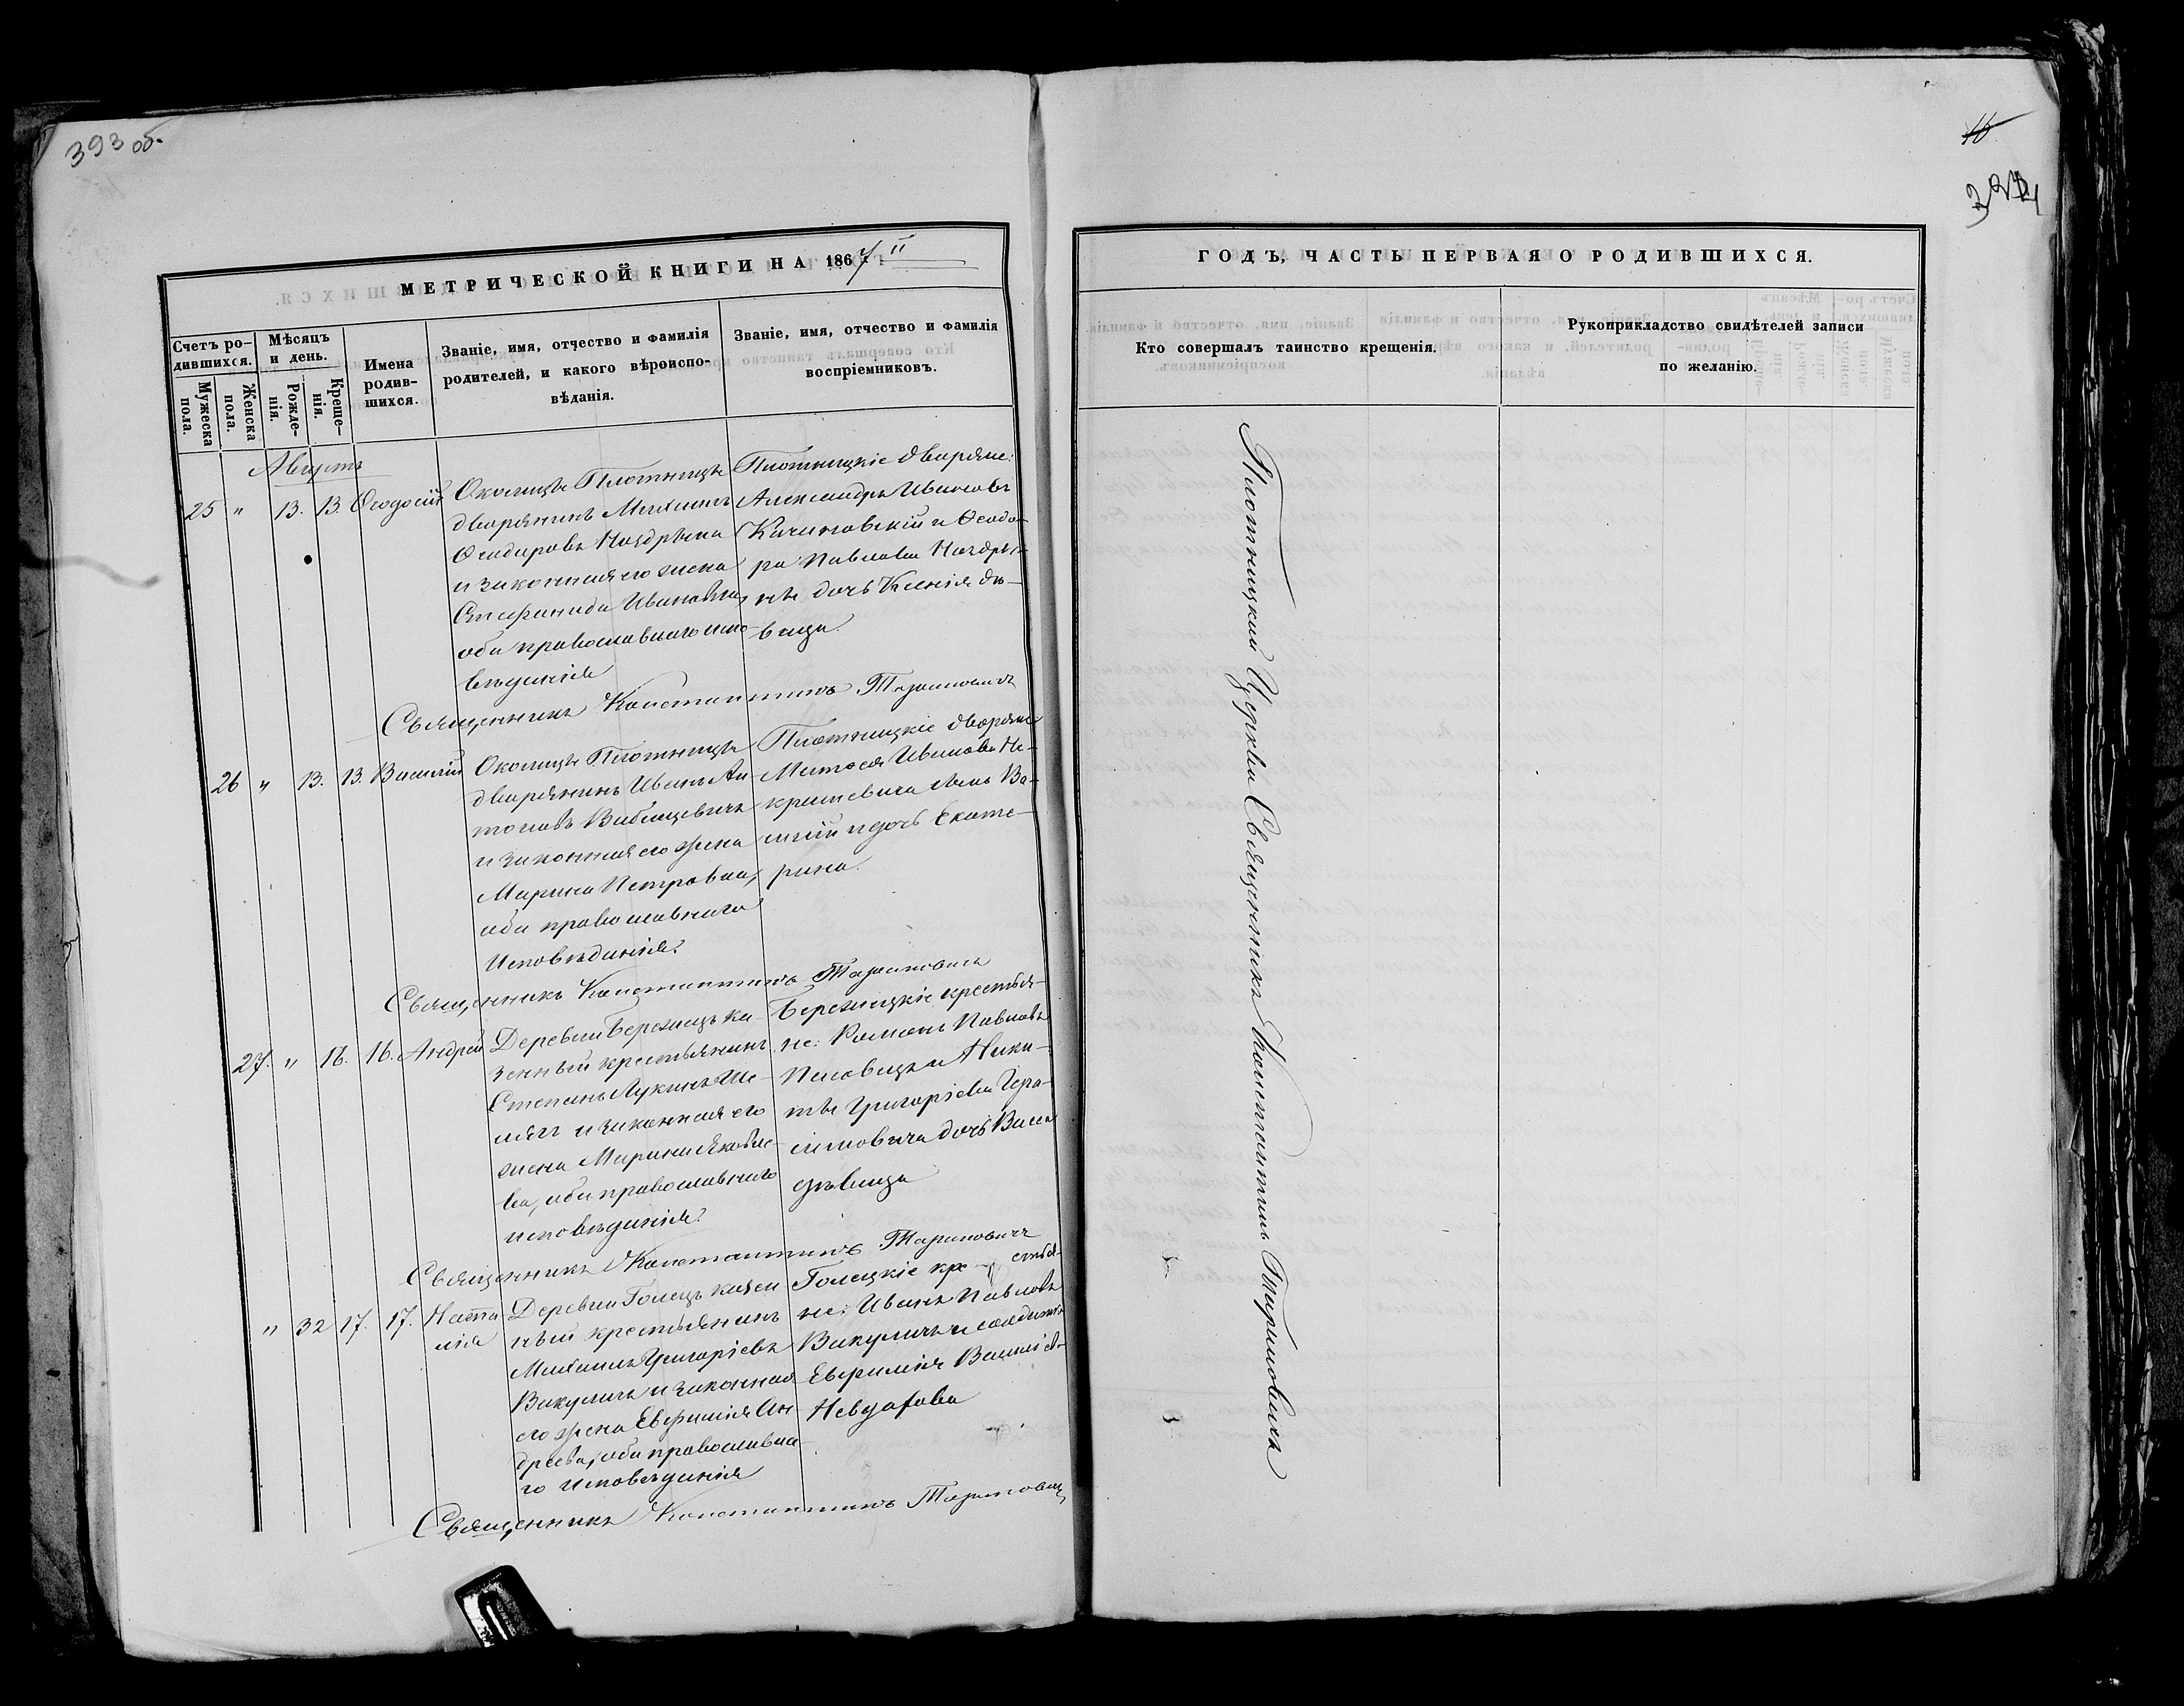 393 об.
МЕТРИЧЕСКОЙ КНИГИ НА 1867 й
Счетъ ро-
дившихся.
Мужеска
пола.
Женска
пола.
Мѣсяцъ
и день.
Рожде-
нія.
Креще-
нія.
Имена
родив-
шихся.
Званіе, имя, отчество и фамилія
родителей, и какого вѣроиспо-
вѣданія.
Званіе, имя, отчество и фамилія
воспріемниковъ.
Августъ
25 " 13. 13. Ѳеодосій
Околицы Плотницы
дворянинъ Михаилъ
Ѳеодоровъ Ноздрына
и законная его жена
Стефанида Иванова,
оба православнаго испо-
вѣданія
Плотницкіе дворяне:
Александръ Ивановъ
Качановскій и Ѳеодо-
ра Павлова Ноздры-
ны дочь Ксенія дѣ-
вица.
Священникъ Константинъ Тариновичъ
26 " 13. 13. Василій
Околицы Плотницы
дворянинъ Иванъ Ан-
тоновъ
и законная его жена
Марина Петрова,
оба православнаго
Исповѣданія.
Плотницкіе дворяне
Матвея Иванова Не-
крашевича сынъ Ва-
силій и дочь Екате-
рина.
Священникъ Константинъ Тариновичъ
27. " 16. 16. Андрей
Деревни Бережецъ ка-
зенный крестьянинъ
Степанъ Лукинъ Ше-
и законная его
жена Марина Яковле-
ва, оба православнаго
исповѣданія.
Бережецкіе крестья-
не: Романъ Павловъ
и Ники-
ты Григоріева Гера-
симовича дочь Васса
дѣвица
Священникъ Константинъ Тариновичъ
" 32 17. 17. Ната
лія
Деревни Голецъ казен
ный крестьянинъ
Михаилъ Григоріевъ
Викуличъ и законная
его жена Евфимія Ан
дреева, оба православна-
го исповѣданія
Голецкіе кре-стья-
не: Иванъ Павловъ
Викуличъ и солдатка
Евфимія Василіев-
Священникъ Константинъ Тариновичъ
16
ГОДЪ, ЧАСТЬ ПЕРВАЯ О РОДИВШИХСЯ.
Кто совершалъ таинство крещенія.
Рукоприкладство свидѣтелей записи
по желанію.
Плотницкой Церкви Священникъ Константинъ Тариновичъ